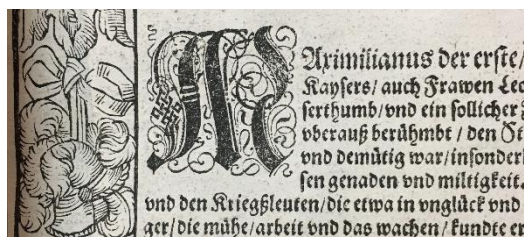 MAximilianus der erste/
Kaysers/ auch Frawen Leo
serthumb/vnd ein sollicher
vberauß berühmbt / den
vnd demütig war/insonder
sen genaden vnd miltigkeit.
vnd den Kriegßleuten/die etwa in vnglück vnd
ger/die mühe/arbeit vnd das wachen/ kundte er